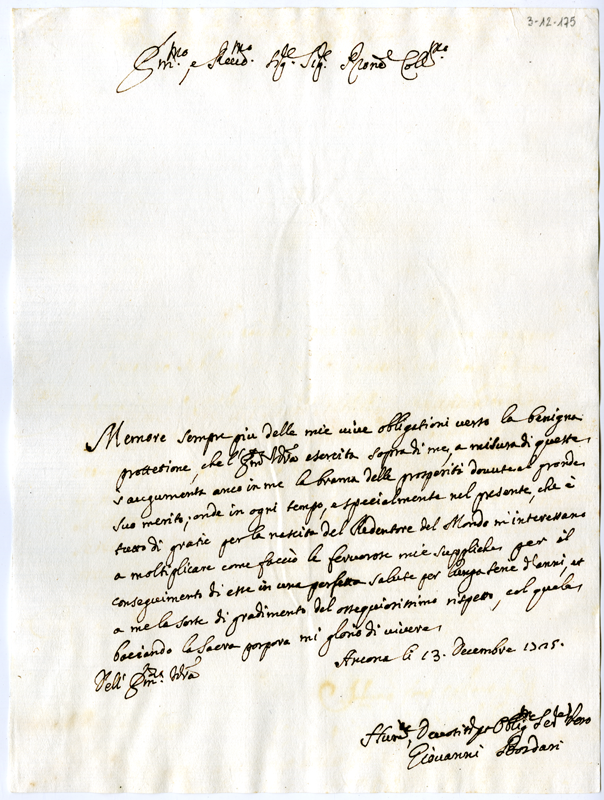 3-12-175
Em.mo e Reud.mo Sig.r Sig.r Pron.e Coll.mo
Memore sempre piu delle mie vive obligationi verso la benigna
prottetione, che l'Em.za V'ra esercita sopra di me, a misura di queste
s'augumenta anco in me la brama delle prosperità dovute al grande
suo merito; onde in ogni tempo, e specialmente nel presente, che è
tutto di gratie per la nascita del Redentore del Mondo m'interessano
a moltiplicare come faccio le feruorose mie suppliche per il
conseguimento di esse in una perfetta salute per lunga serie d'anni, et
a me la sorte di gradimento del ossequiosissimo rispetto, col quale
bacciando la Sacra porpora mi glorio di vivere
Ancona li 13. Decembre
Dell' Em.za V'ra
Deuotis.mo Oblig.mo Ser.re Vero
Giovanni Bordari